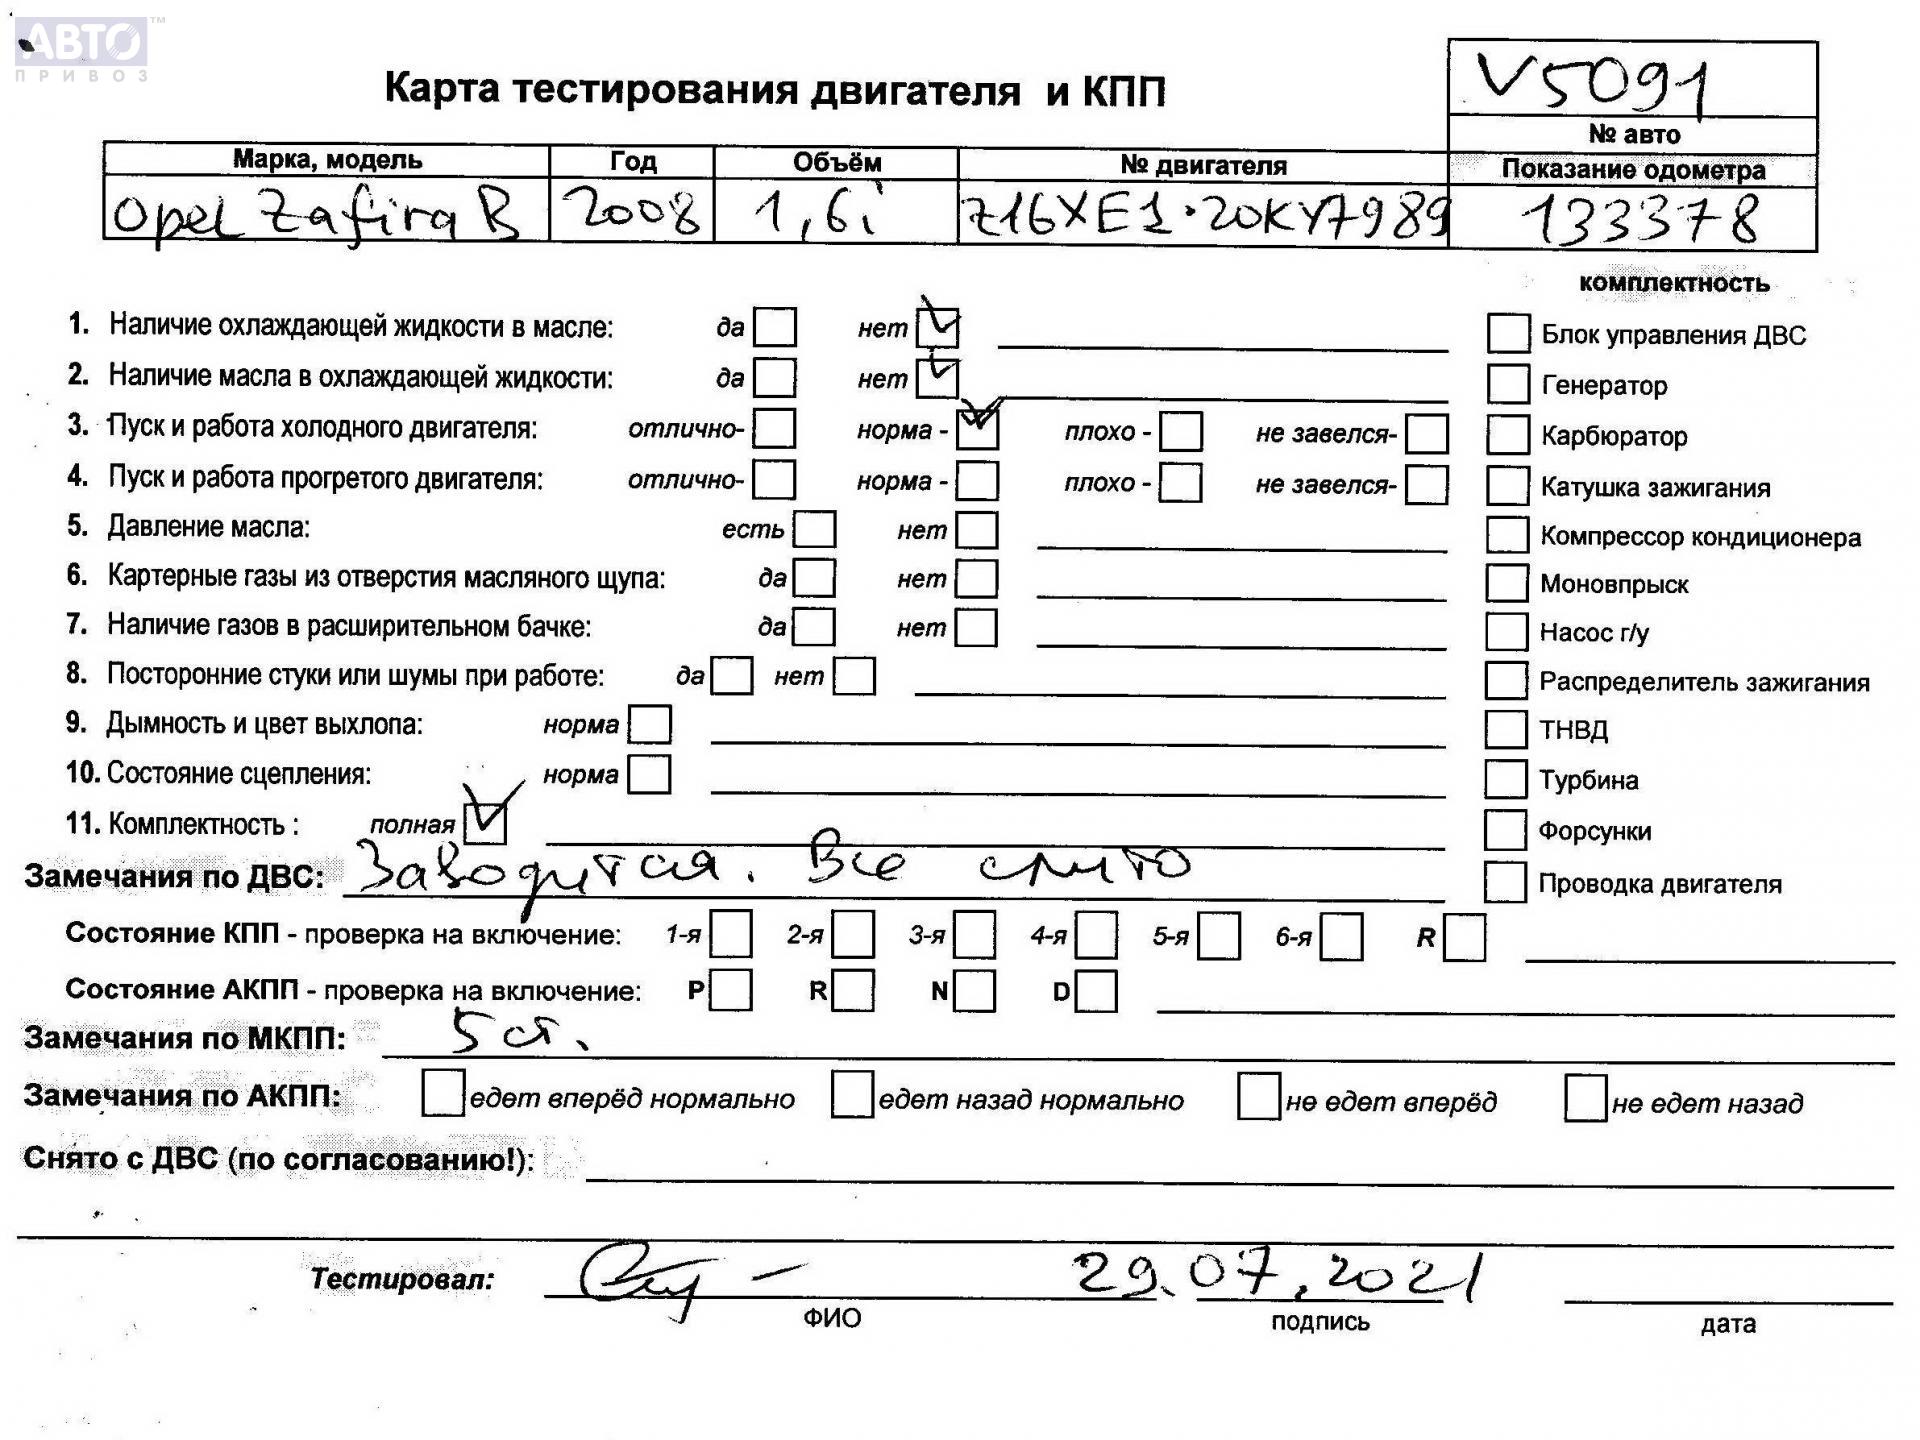 АВТО™
ПРИВОЗ
Карта тестирования двигателя и КПП
V5091
№ авто
Марка, модель Год Объём № двигателя Показание одометра
Opel Zafira B 2008 1,6i Z16XE1·20KY7989 133378
комплектность
1. Наличие охлаждающей жидкости в масле: да нет Блок управления ДВС
2. Наличие масла в охлаждающей жидкости: да нет Генератор
3. Пуск и работа холодного двигателя: отлично- норма - плохо - не завелся- Карбюратор
4. Пуск и работа прогретого двигателя: отлично- норма - плохо - не завелся- Катушка зажигания
5. Давление масла: есть нет Компрессор кондиционера
6. Картерные газы из отверстия масляного щупа: да нет Моновпрыск
7. Наличие газов в расширительном бачке: да нет Насос г/у
8. Посторонние стуки или шумы при работе: да нет Распределитель зажигания
9. Дымность и цвет выхлопа: норма ТНВД
10. Состояние сцепления: норма Турбина
11. Комплектность : полная Форсунки
Замечания по ДВС: Заводится. Все слито Проводка двигателя
Состояние КПП - проверка на включение: 1-я 2-я 3-я 4-я 5-я 6-я R
Состояние АКПП - проверка на включение: P R N D
Замечания по МКПП: 5 ст.
Замечания по АКПП: едет вперёд нормально едет назад нормально не едет вперёд не едет назад
Снято с ДВС (по согласованию!):
Тестировал: 29.07.2021
ФИО подпись дата